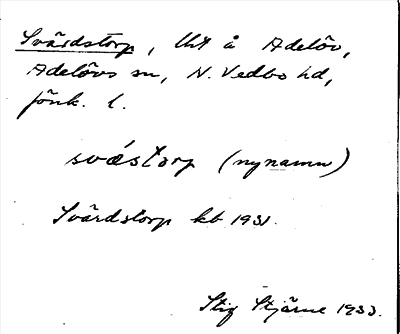 Svärdstorp, lht å Adelöv,
Adelövs sn, N. Vedbo hd,
Jönk. l.
svǽstorp (nynamn)
Svärdstorp kb 1931.
Stig Stjärne 1933.